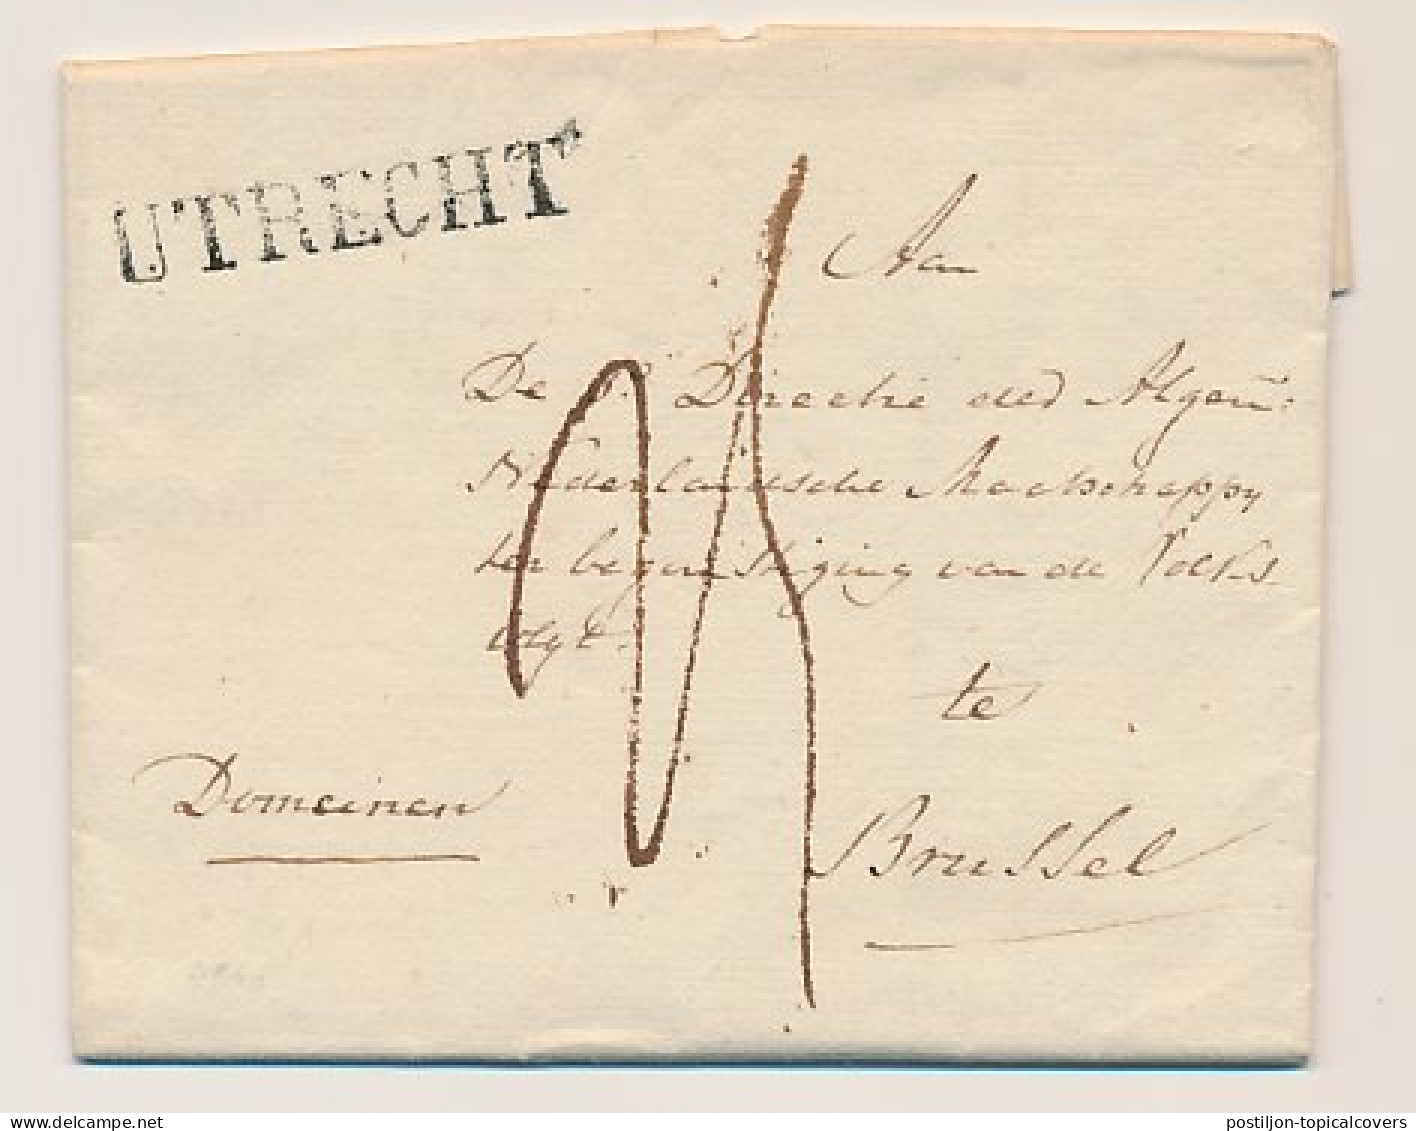 UTRECHT
Aan
De Directie der Algem:
Nederlandsche Maatschappy
ter begunstiging van de Volks
vlyt.
te
Domeinen
Brussel
delcampe.net
postiljon-topicalcovers